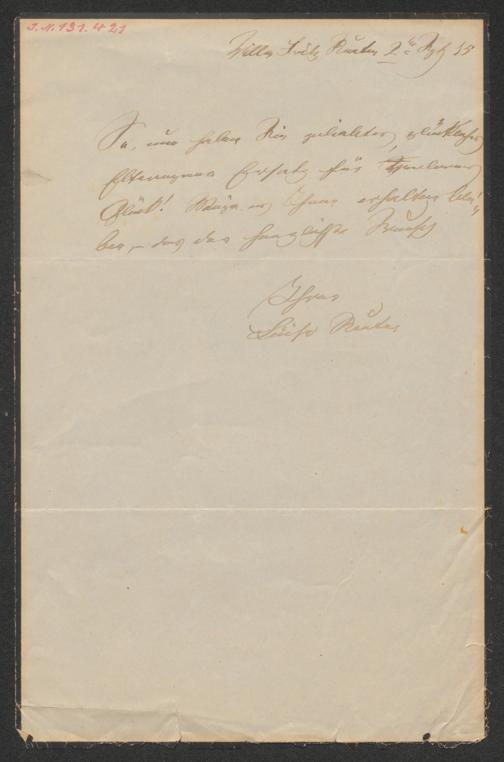 I.N. 131.421
Villa Fritz Reuter 2
So, nun haben Sie geliebtes, glückliches
Elternpaar Ersatz für
Glück! Möge es Ihnen erhalten blei-
ben, – das der herzlichste Wunsch
Ihrer
Luise Reuter